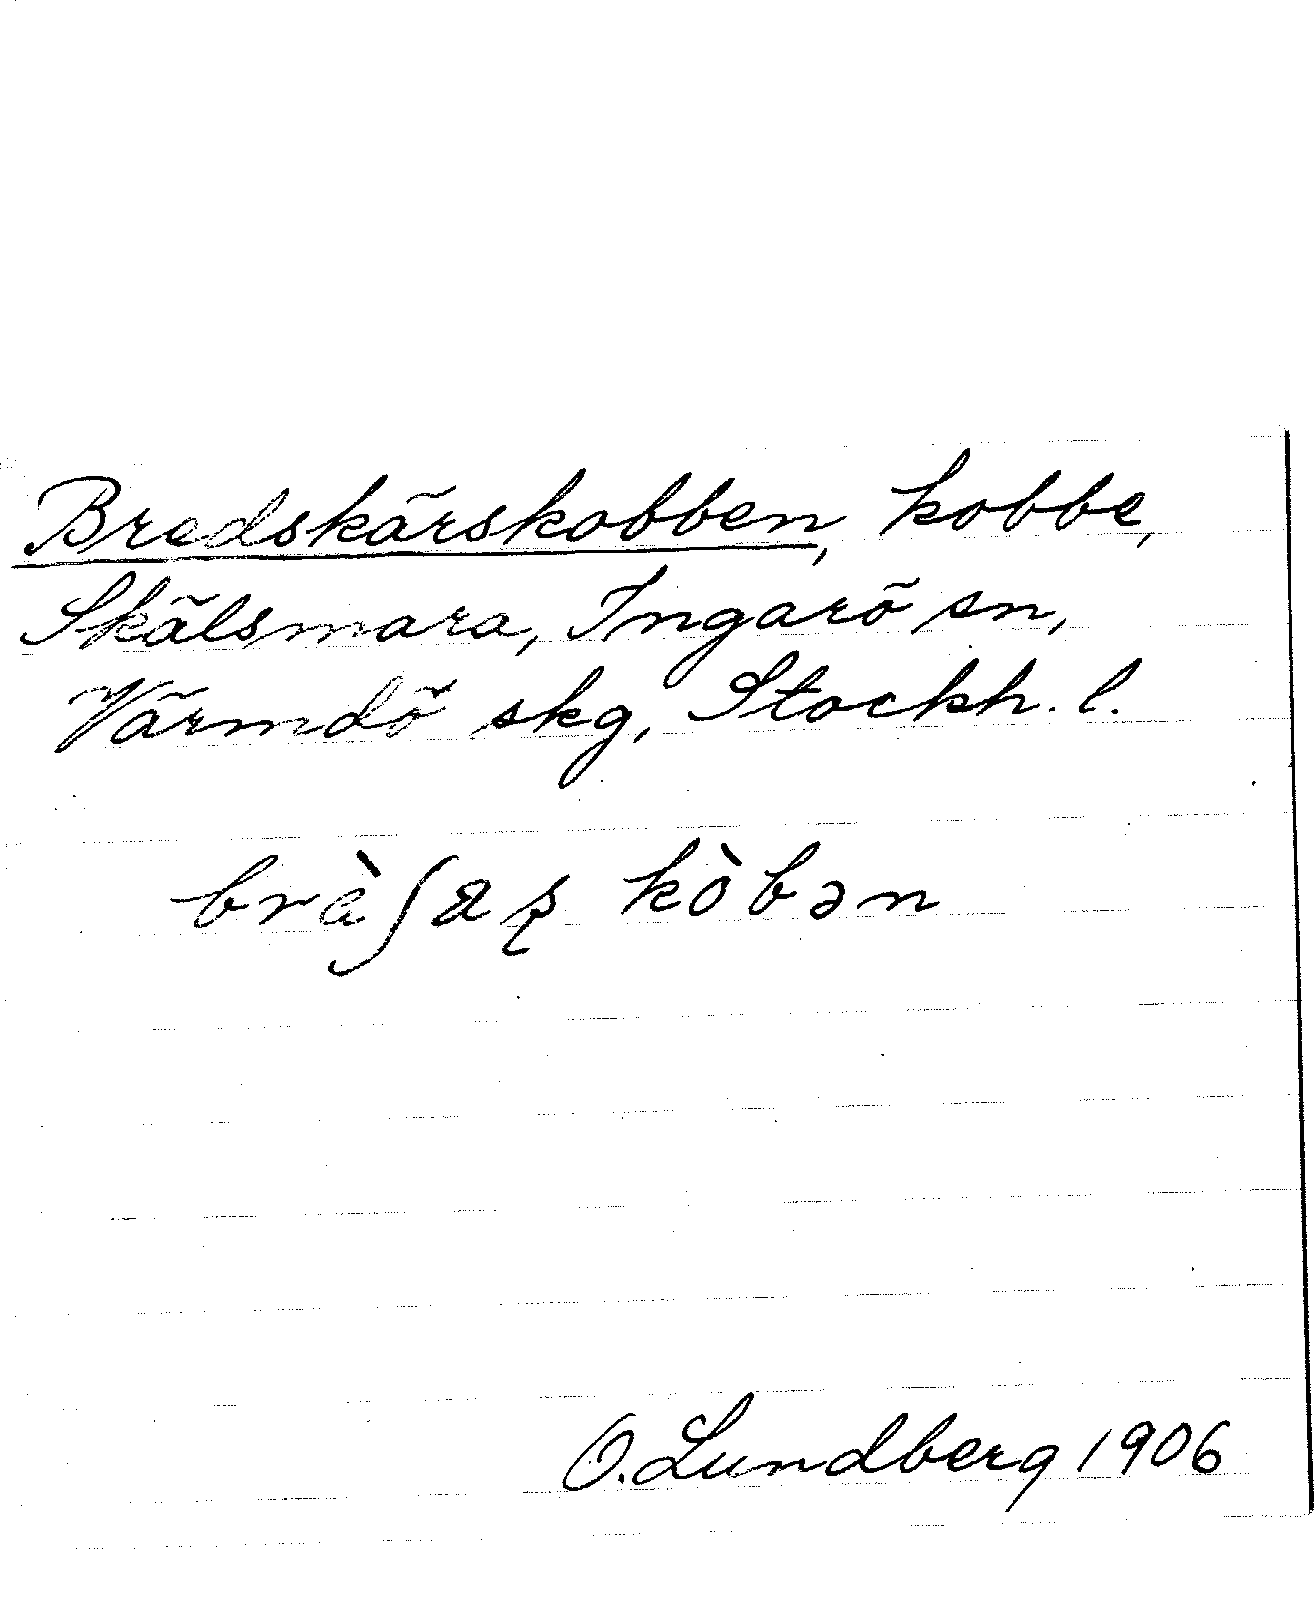 Bredskärskobben, kobbe,
Skälsmara, Ingarö sn,
Värmdö skg, Stockh. l.
kòbən
O. Lundberg 1906